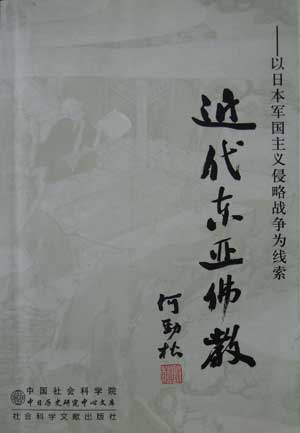 ——以日本军国主义侵略战争为线索
近代东亚佛教
何劲松
中国社会科学院
中日历史研究中心文库
社会科学文献出版社